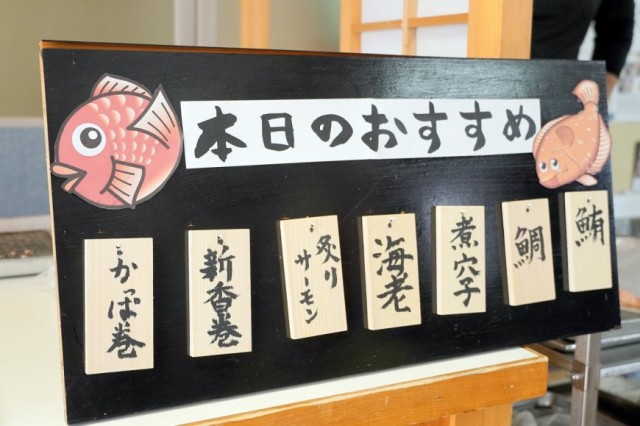 本日のおすすめ
鮪
鯛
煮穴子
海老
炙りサーモン
新香巻
かっぱ巻